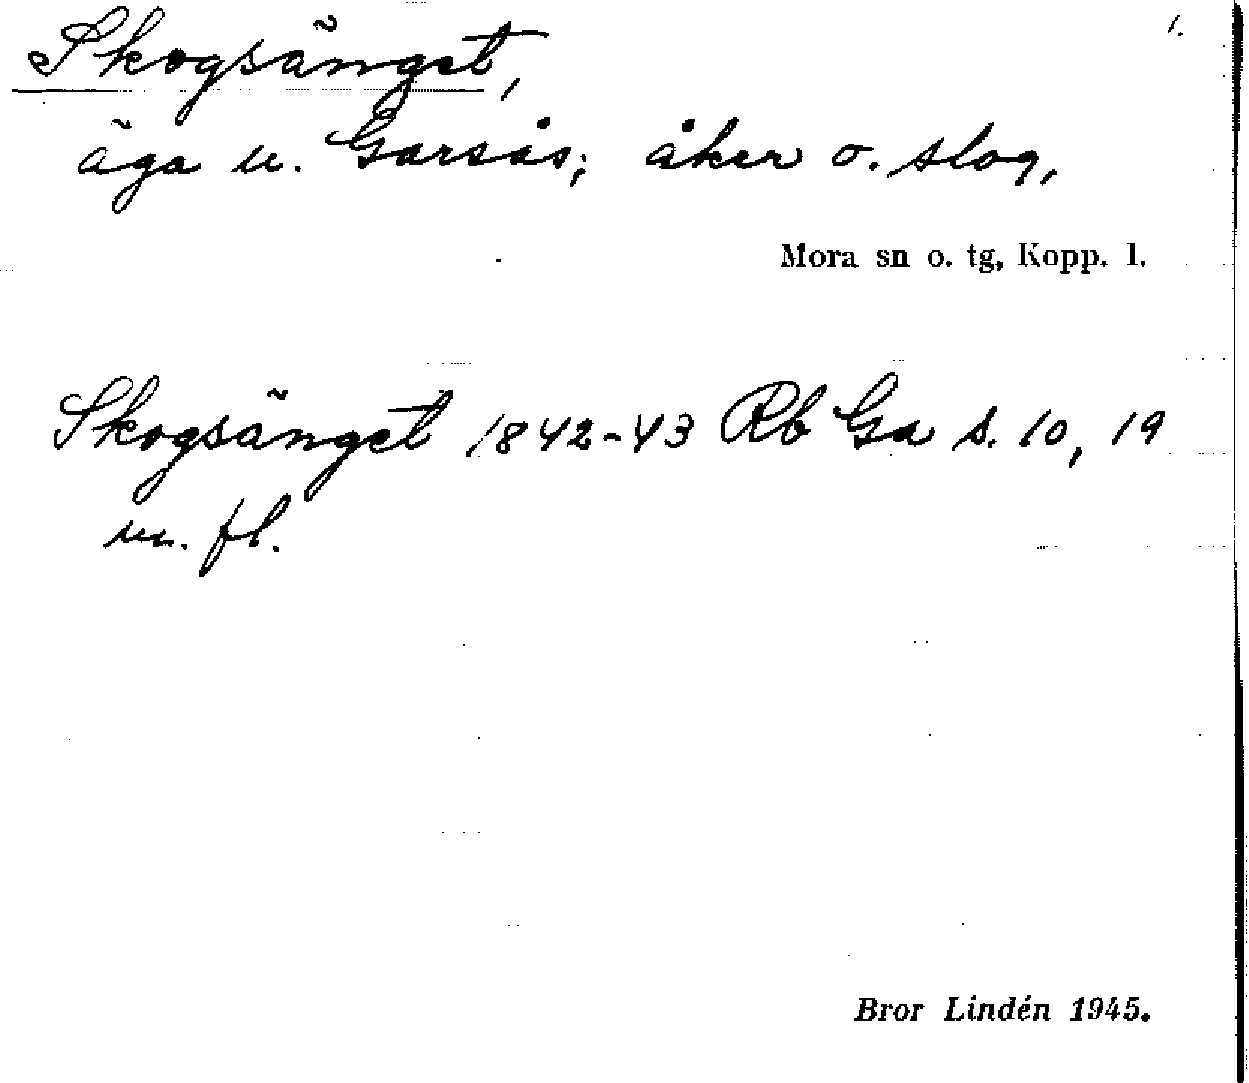 1.
Skogsänget,
äga u. Garsås; åker o. slog,
Mora sn o. tg, Kopp. l.
Skogsänget 1842-43 Rb Ga s. 10, 19
m. fl.
Bror Lindén 1945.